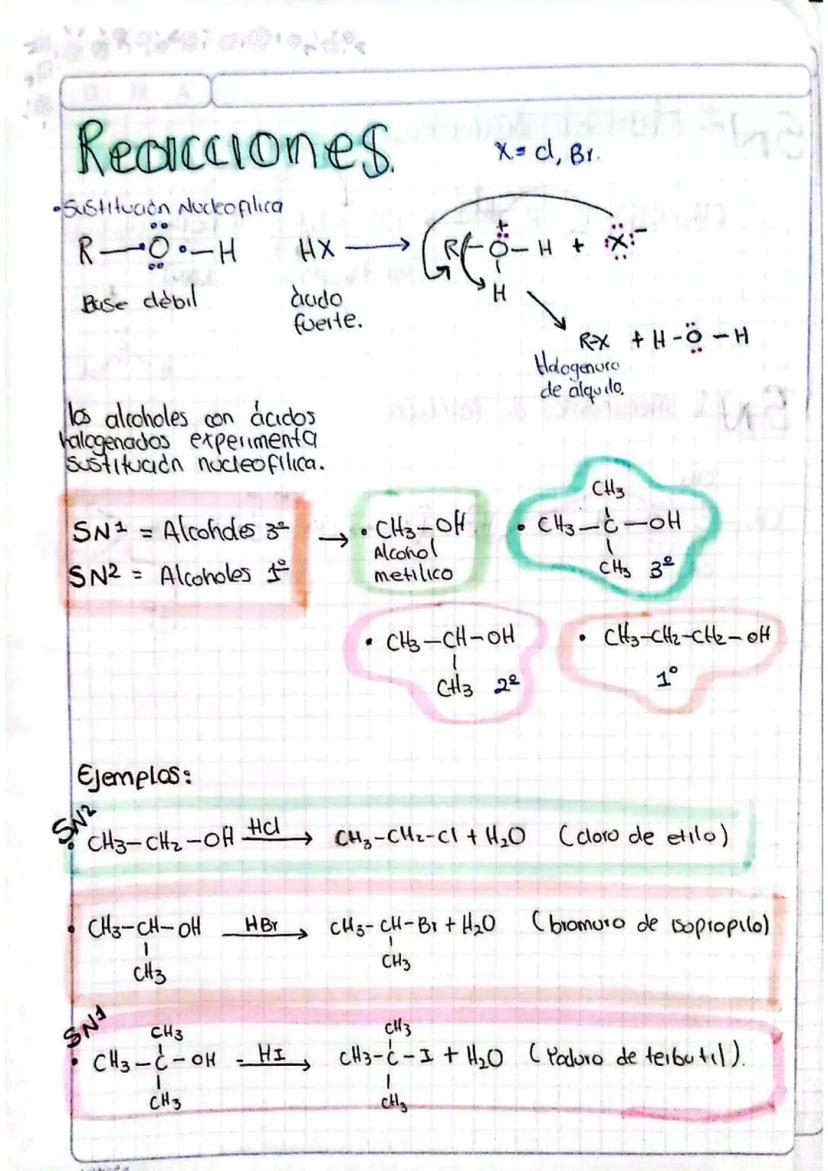 A M D
Reacciones.
X= Cl, Br.
• Sustitución Nucleofilica
R—O—H HX → R—O—H + X⁻
+
H
Base débil ácido
fuerte.
R-X + H-O-H
Halogenuro
de alquilo.
los alcoholes con ácidos
halogenados experimenta
sustitución nucleofilica.
SN1 = Alcoholes 3º → • CH3-OH
SN2 = Alcoholes 1º
Alcohol
metilico
CH3
• CH3-C-OH
CH3 3º
• CH3-CH-OH
CH3 2º
• CH3-CH2-CH2-OH
1º
Ejemplos:
SN2
• CH3-CH2-OH HCl → CH3-CH2-Cl + H2O (cloro de etilo)
• CH3-CH-OH HBr → CH3-CH-Br + H2O (bromuro de isopropilo)
CH3 CH3
SN1
CH3 CH3
• CH3-C-OH HI → CH3-C-I + H2O (Yoduro de terbutil).
CH3 CH3